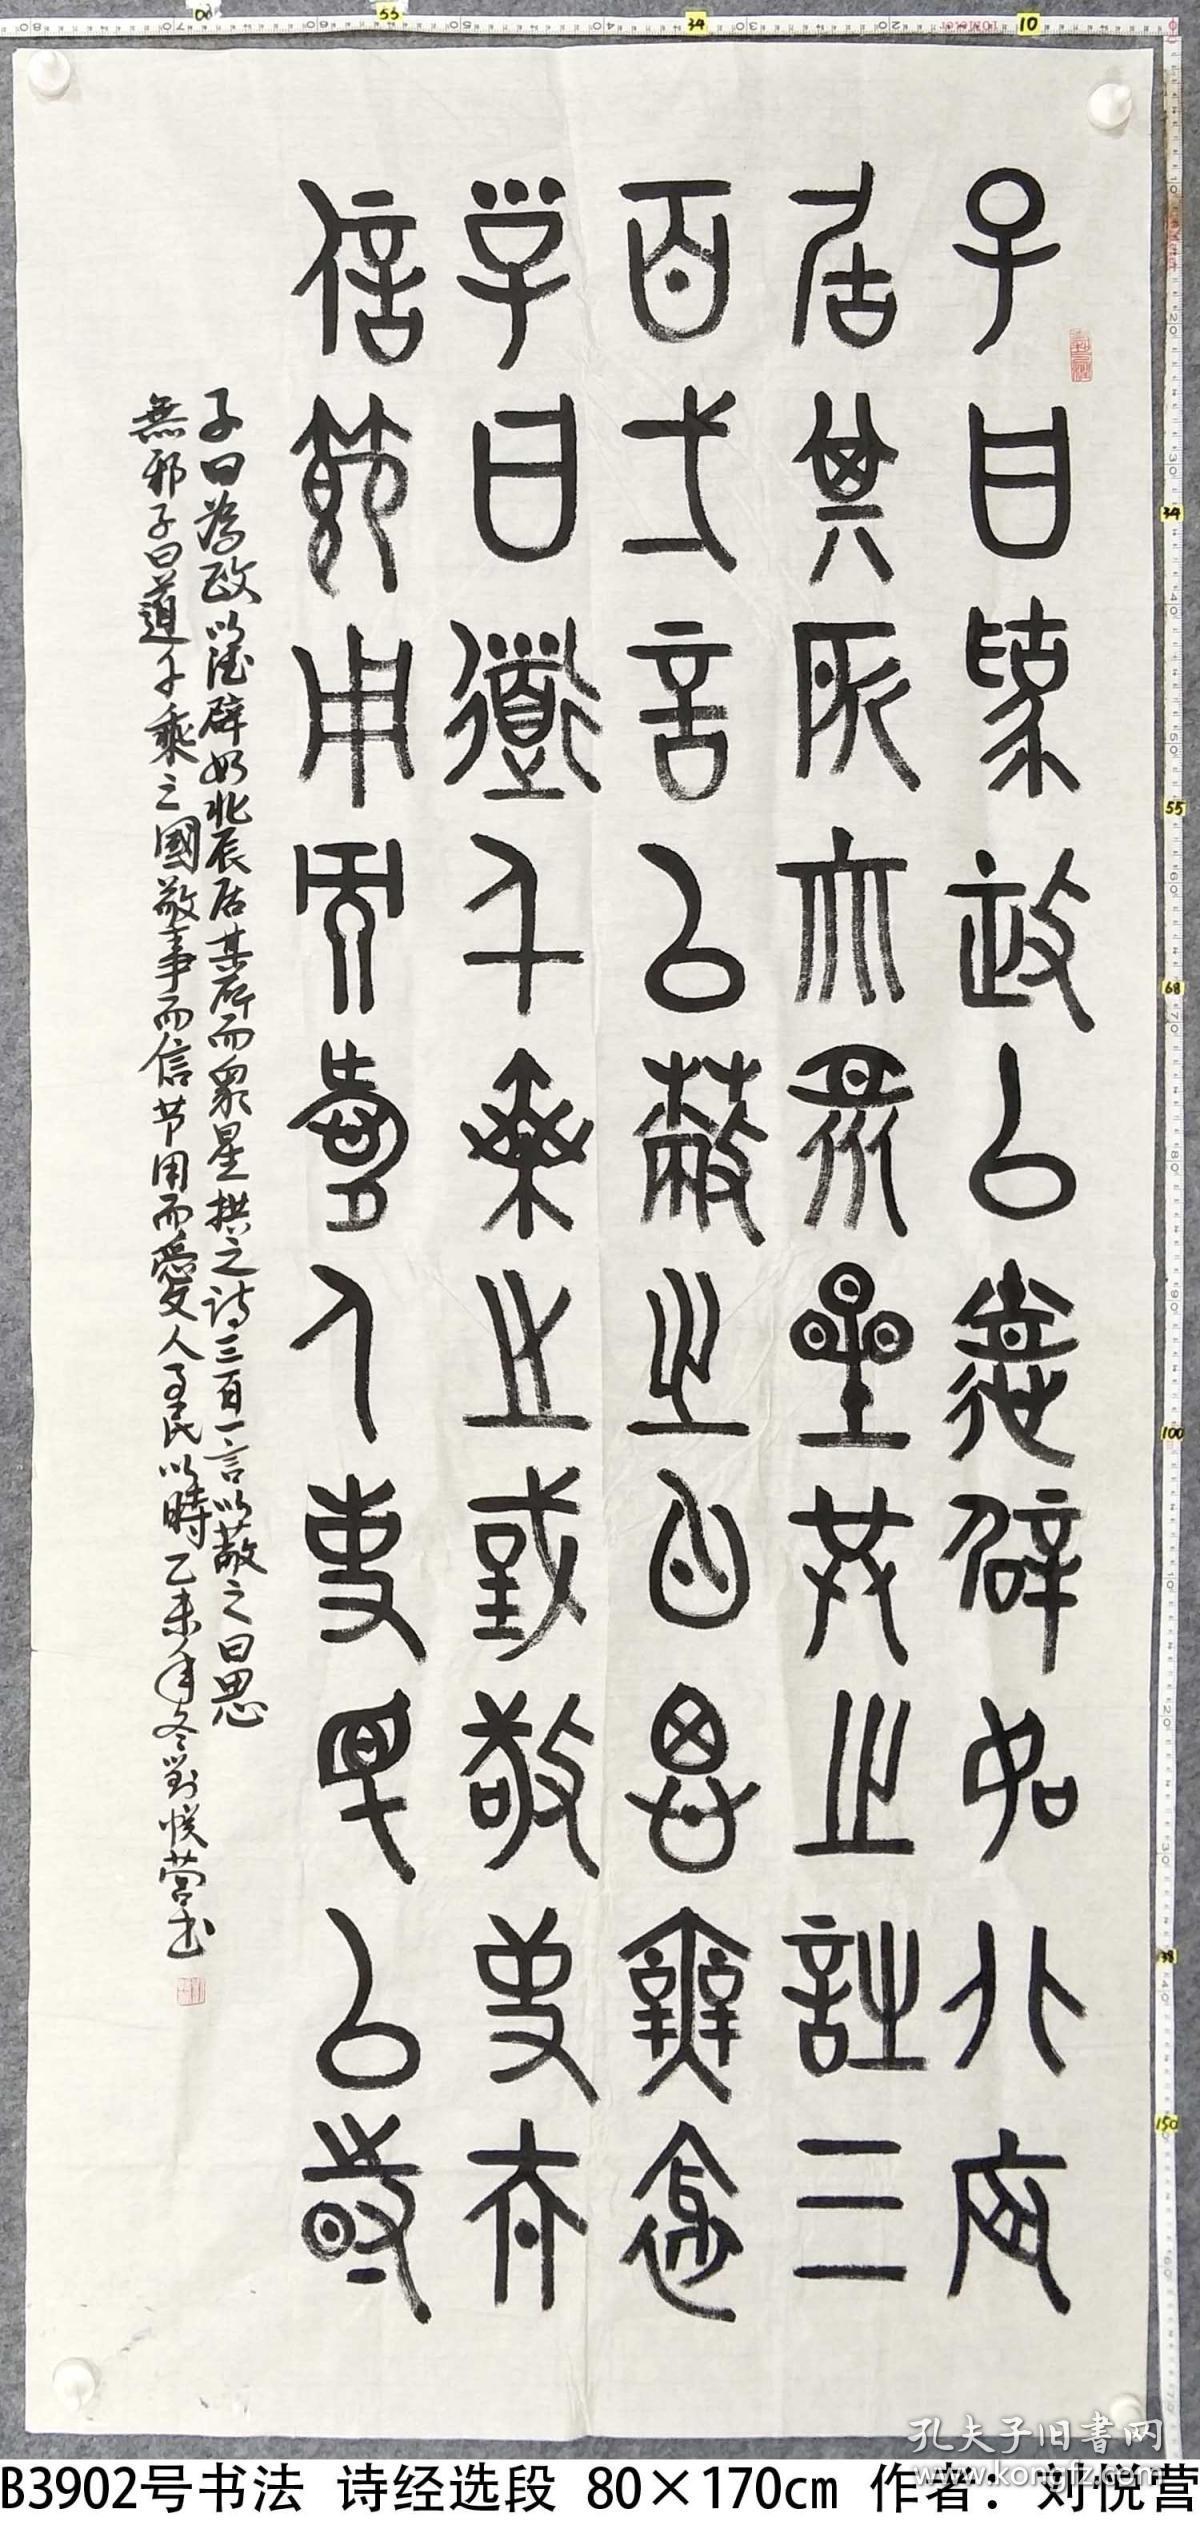 子曰為政以德辟如北辰
居其所而眾星共之詩三
百弌言以蔽之曰思無邪
子曰道千乘之國敬事而
信節用而愛人事民以時
子曰為政以德辟如北辰居其所而眾星拱之詩三百一言以蔽之曰思
無邪子曰道千乘之國敬事而信节用而愛人事民以時乙未年冬劉悅营书
孔夫子旧书网
www.kongfz.com
B3902号书法 诗经选段 80×170cm 作者：刘悦营